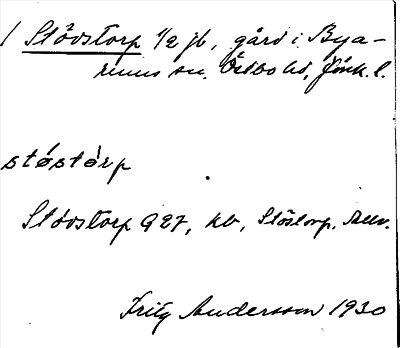 1 Stövstorp 1/2 jb, gård i Bya-
rums sn, Östbo hd, Jönk. l.
støstòrp
Stovstorp G 27, kb, Stöstorp.
Fritz Andersson 1930